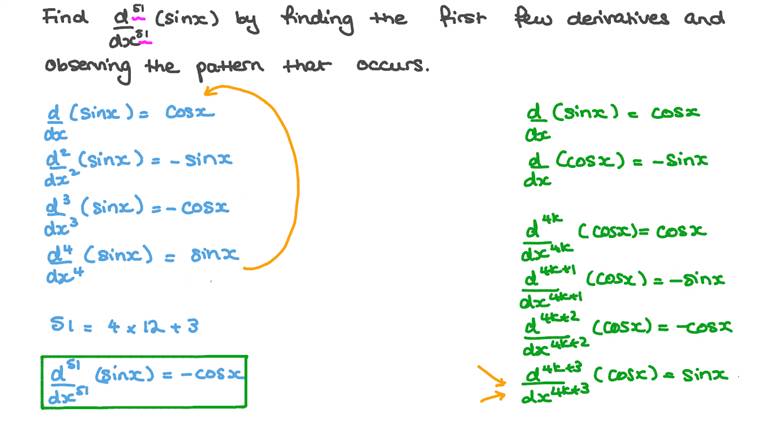 Find d^51/dx^51 (sinx) by finding the first few derivatives and
observing the pattern that occurs.
d/dx (sinx) = cosx
d^2/dx^2 (sinx) = -sinx
d^3/dx^3 (sinx) = -cosx
d^4/dx^4 (sinx) = sinx
51 = 4 × 12 + 3
d^51/dx^51 (sinx) = -cosx
d/dx (sinx) = cosx
d/dx (cosx) = -sinx
d^4k/dx^4k (cosx) = cosx
d^4k+1/dx^4k+1 (cosx) = -sinx
d^4k+2/dx^4k+2 (cosx) = -cosx
d^4k+3/dx^4k+3 (cosx) = sinx